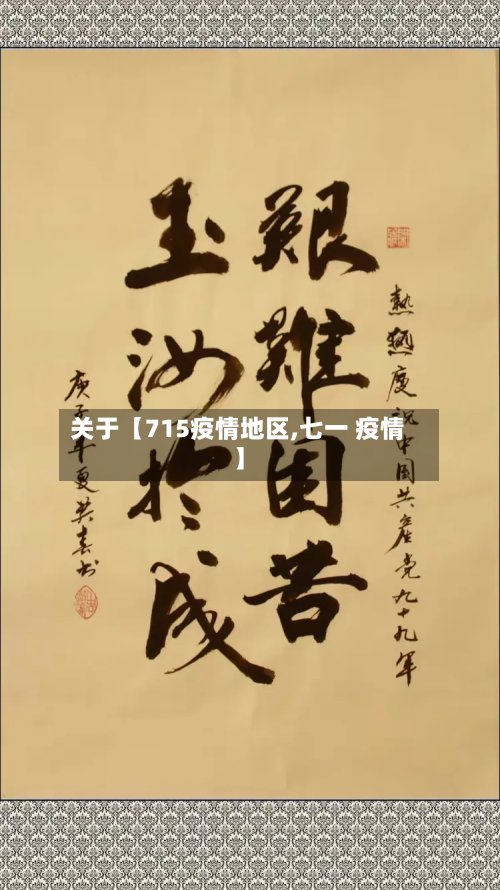 艱難困苦
玉汝於成
熱熱慶祝中國共產党九十九年
庚子年夏英春书
关于【715疫情地区,七一 疫情
】